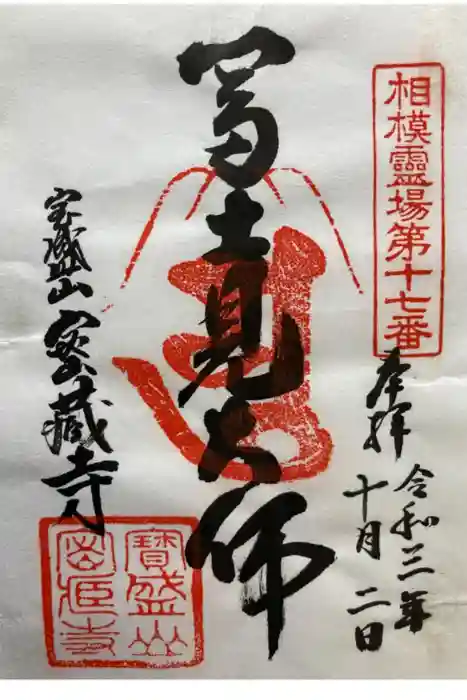 相模霊場第十七番
奉拝
令和三年
十月二日
富士見大師
宝盛山密蔵寺
寶盛山
密蔵寺